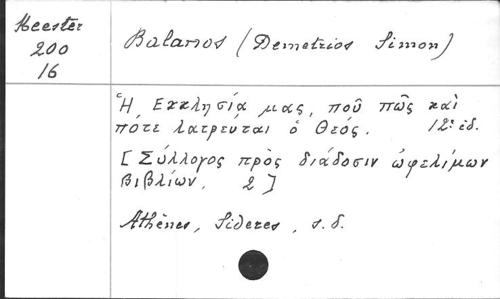 Meester
200
16
Balanos (Demetrios Simon)
Ἡ Εκκλησία μας, ποῦ πῶς καὶ
πότε λατρεύται ὁ Θεός. 12e éd.
[Σύλλογος πρὸς διάδοσιν ὠφελίμων
βιβλίων, 2]
Athènes, Sideres, s.d.